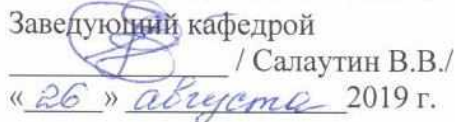 Заведующий кафедрой
/ Салаутин В.В./
« 26 » августа 2019 г.